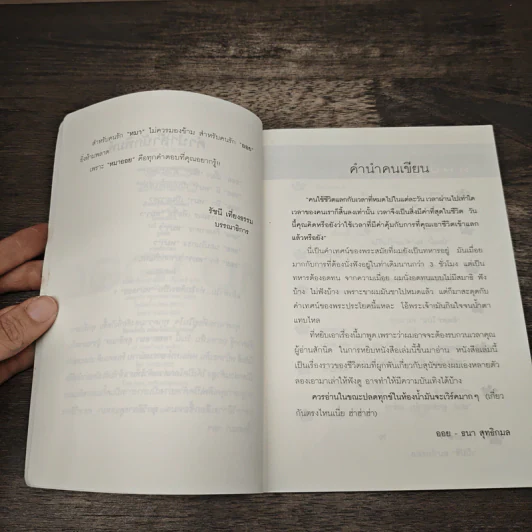 สำหรับคนรัก "หมา" ไม่ควรมองข้าม สำหรับคนรัก "ออย"
ยิ่งห้ามพลาด
เพราะ "หมาออย" คือทุกคำตอบที่คุณอยากรู้ๆ
รัชนี เที่ยงธรรม
บรรณาธิการ
คำนำคนเขียน
"คนใช้ชีวิตแลกกับเวลาที่หมดไปในแต่ละวัน เวลาผ่านไปเท่าใด
เวลาของคนเราก็สั้นลงเท่านั้น เวลาจึงเป็นสิ่งมีค่าที่สุดในชีวิต วัน
นี้คุณคิดหรือยังว่าใช้เวลาที่มีค่าคุ้มกับการที่คุณเอาชีวิตเข้าแลก
แล้วหรือยัง"
นี่เป็นคำเทศน์ของพระสมัยที่ผมยังเป็นทหารอยู่ มันเมื่อย
มากกับการที่ต้องนั่งฟังอยู่ในท่าเดิมนานกว่า 3 ชั่วโมง แต่เป็น
ทหารต้องอดทน จากความเมื่อย ผมนั่งอดทนแบบไม่มีสมาธิ ฟัง
บ้าง ไม่ฟังบ้าง เพราะขาผมมันชาไปหมดแล้ว แต่ก็มาสะดุดกับ
คำเทศน์ของพระประโยคนี้แหละ โอ้พระเจ้ามันกินใจจนน้ำตา
แทบไหล
ที่หยิบเอาเรื่องนี้มาพูด เพราะว่าผมอาจจะต้องรบกวนเวลาคุณ
ผู้อ่านสักนิด ในการหยิบหนังสือเล่มนี้ขึ้นมาอ่าน หนังสือเล่มนี้
เป็นเรื่องราวของชีวิตผมที่ผูกพันเกี่ยวกับสุนัขของผมเองหลายตัว
ลองเอามาเล่าให้ฟังดู อาจทำให้มีความบันเทิงได้บ้าง
ควรอ่านในขณะปลดทุกข์ในห้องน้ำมันจะเวิร์คมาก ๆ (เกี่ยว
กันตรงไหนเนี่ย ฮ่าฮ่าฮ่า)
ออย - ธนา สุทธิกมล